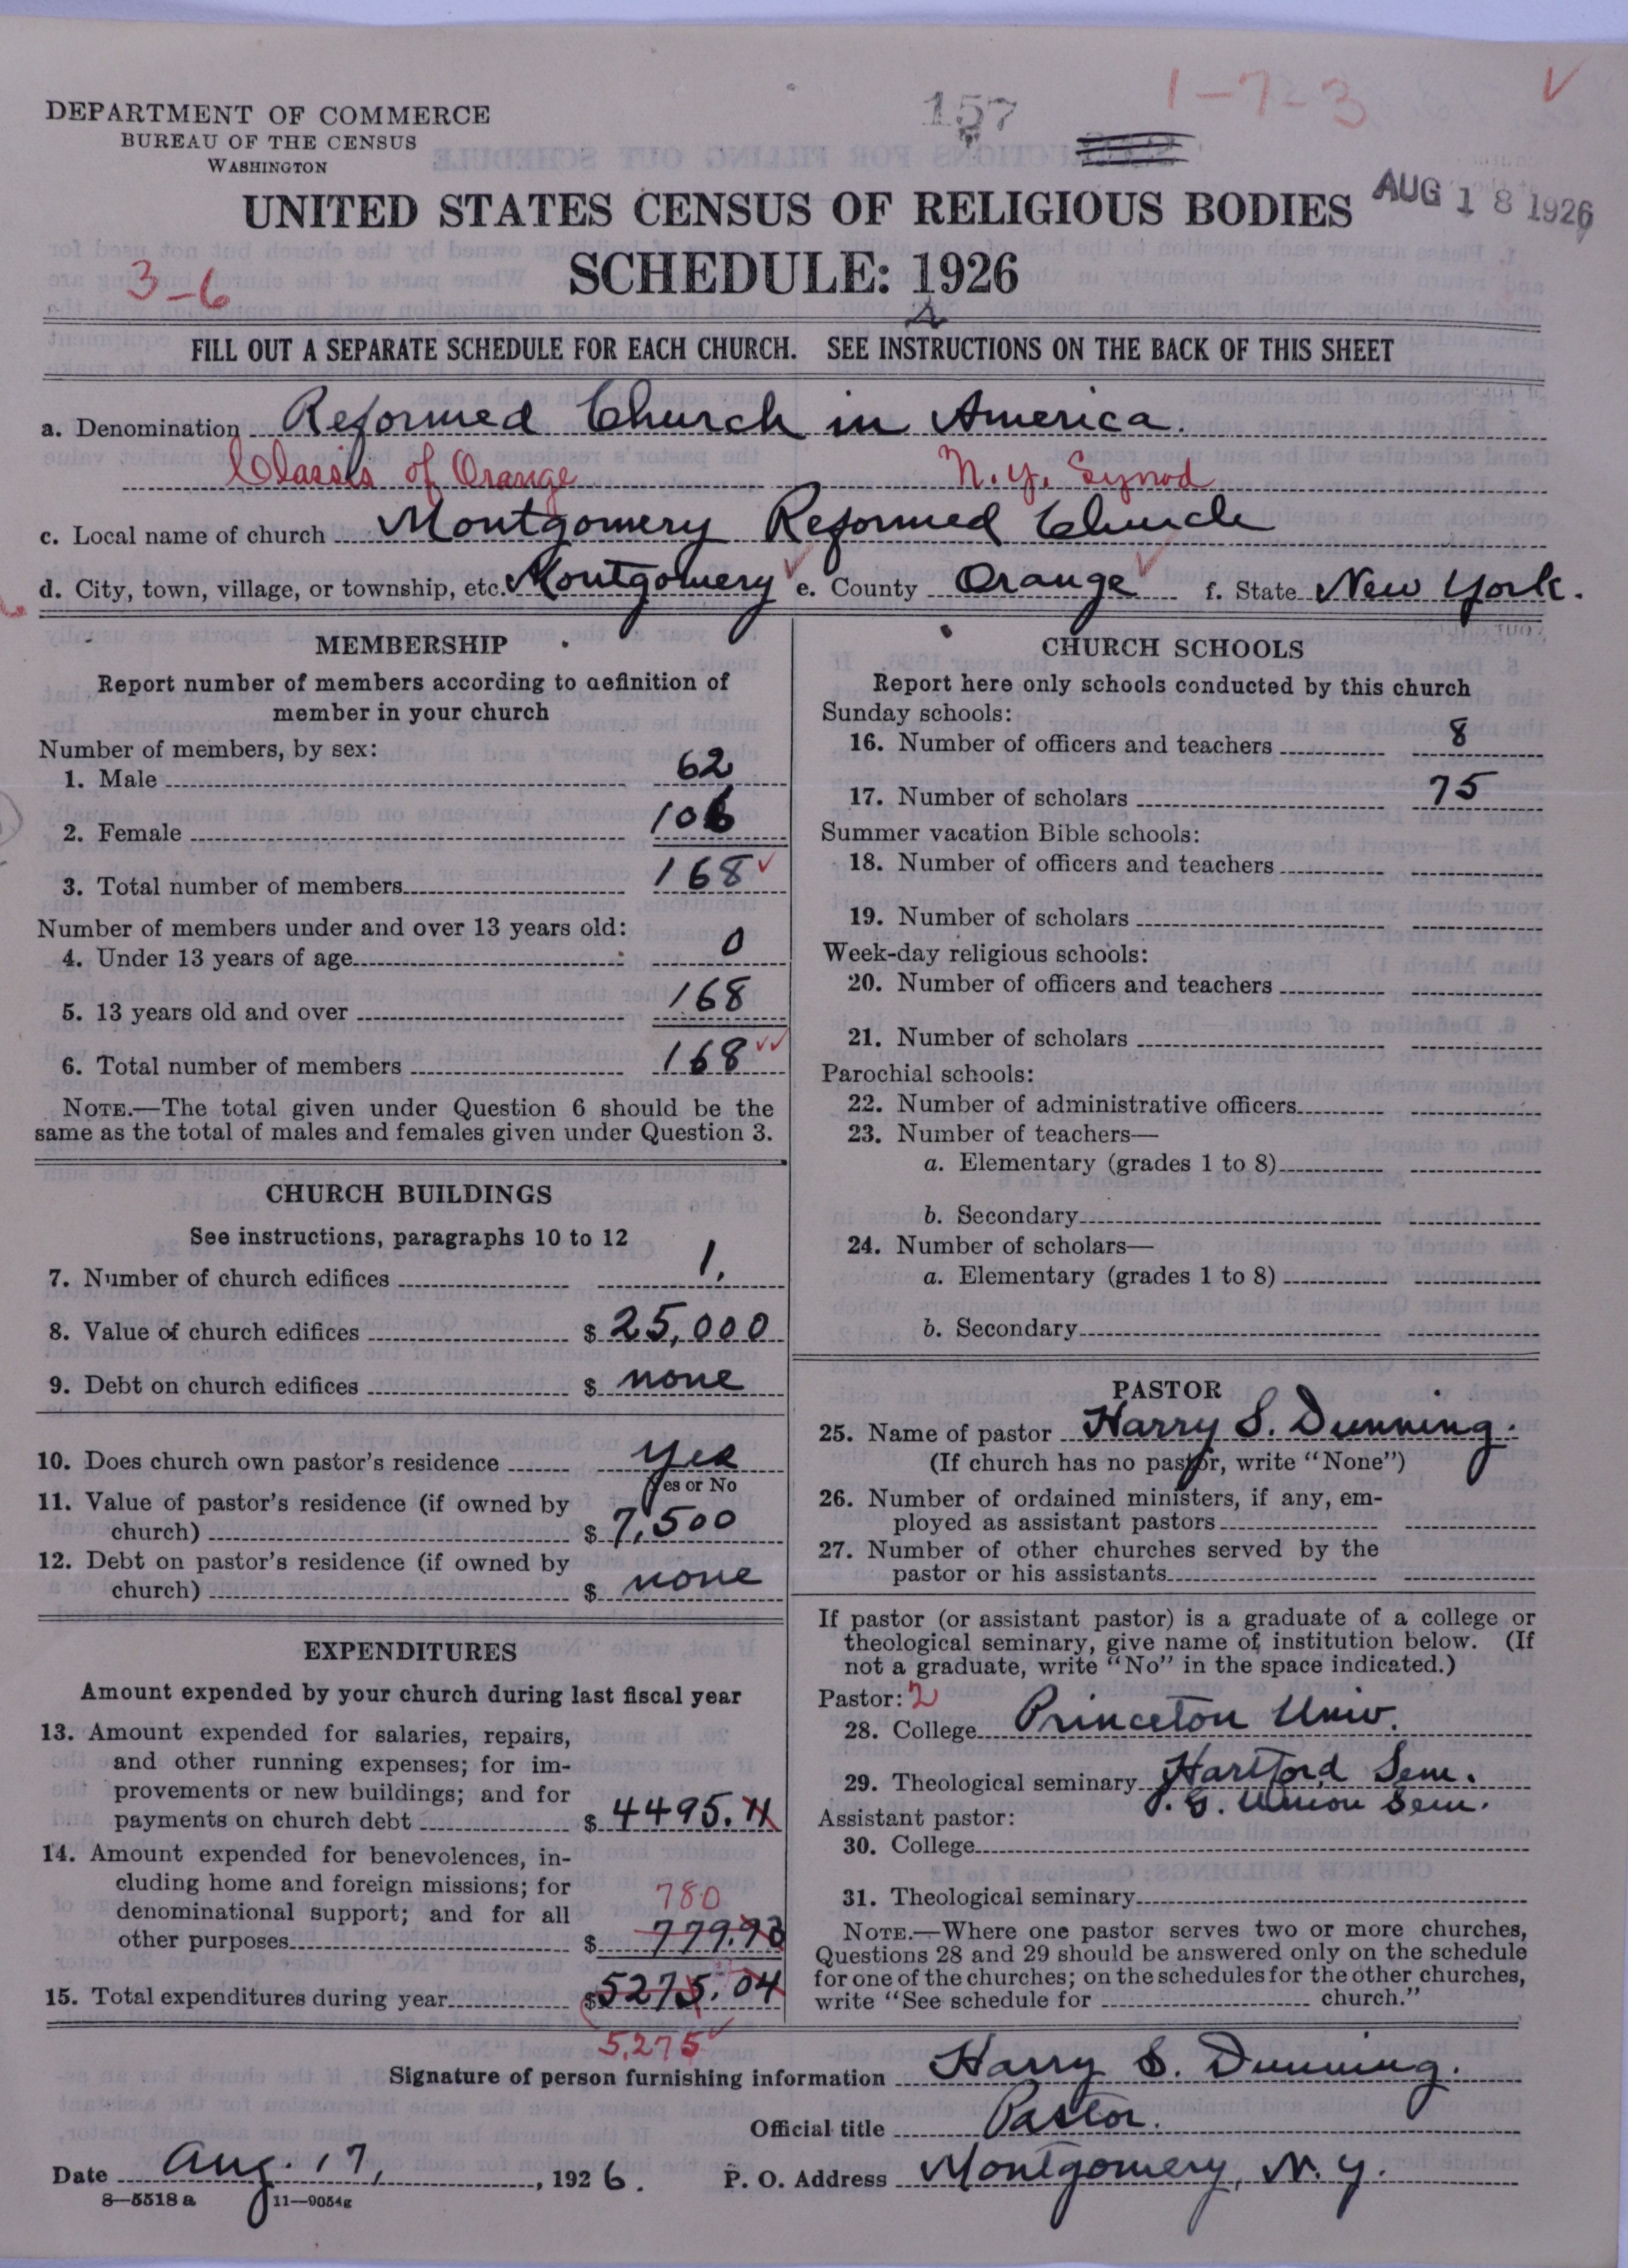 DEPARTMENT OF COMMERCE
BUREAU OF THE CENSUS
WASHINGTON
157
1-723
UNITED STATES CENSUS OF RELIGIOUS BODIES
AUG 18 1926
SCHEDULE: 1926
3-6
FILL OUT A SEPARATE SCHEDULE FOR EACH CHURCH. SEE INSTRUCTIONS ON THE BACK OF THIS SHEET
a. Denomination Reformed Church in America.
Classis of Orange N.Y. Synod
c. Local name of church Montgomery Reformed Church
d. City, town, village, or township, etc. Montgomery e. County Orange f. State New York.
MEMBERSHIP
Report number of members according to definition of
member in your church
Number of members, by sex:
1. Male 62
2. Female 106
3. Total number of members 168
Number of members under and over 13 years old:
4. Under 13 years of age 0
5. 13 years old and over 168
6. Total number of members 168
NOTE.—The total given under Question 6 should be the
same as the total of males and females given under Question 3.
CHURCH BUILDINGS
See instructions, paragraphs 10 to 12
7. Number of church edifices 1.
8. Value of church edifices $ 25,000
9. Debt on church edifices $ none
10. Does church own pastor's residence Yes
Yes or No
11. Value of pastor's residence (if owned by
church) $ 7,500
12. Debt on pastor's residence (if owned by
church) $ none
EXPENDITURES
Amount expended by your church during last fiscal year
13. Amount expended for salaries, repairs,
and other running expenses; for im-
provements or new buildings; and for
payments on church debt $ 4495.11
14. Amount expended for benevolences, in-
cluding home and foreign missions; for
denominational support; and for all
780
other purposes $ 779.93
15. Total expenditures during year $5275.04
5,275
CHURCH SCHOOLS
Report here only schools conducted by this church
Sunday schools:
16. Number of officers and teachers 8
17. Number of scholars 75
Summer vacation Bible schools:
18. Number of officers and teachers
19. Number of scholars
Week-day religious schools:
20. Number of officers and teachers
21. Number of scholars
Parochial schools:
22. Number of administrative officers
23. Number of teachers—
a. Elementary (grades 1 to 8)
b. Secondary
24. Number of scholars—
a. Elementary (grades 1 to 8)
b. Secondary
PASTOR
25. Name of pastor Harry S. Dunning.
(If church has no pastor, write "None")
26. Number of ordained ministers, if any, em-
ployed as assistant pastors
27. Number of other churches served by the
pastor or his assistants
If pastor (or assistant pastor) is a graduate of a college or
theological seminary, give name of institution below. (If
not a graduate, write "No" in the space indicated.)
Pastor: 2
28. College Princeton Univ.
29. Theological seminary Hartford Sem.
P. G. Union Sem.
Assistant pastor:
30. College
31. Theological seminary
NOTE.—Where one pastor serves two or more churches,
Questions 28 and 29 should be answered only on the schedule
for one of the churches; on the schedules for the other churches,
write "See schedule for church."
Signature of person furnishing information Harry S. Dunning.
Official title Pastor.
Date Aug. 17, , 1926. P. O. Address Montgomery, N.Y.
8—5518 a 11—9054g